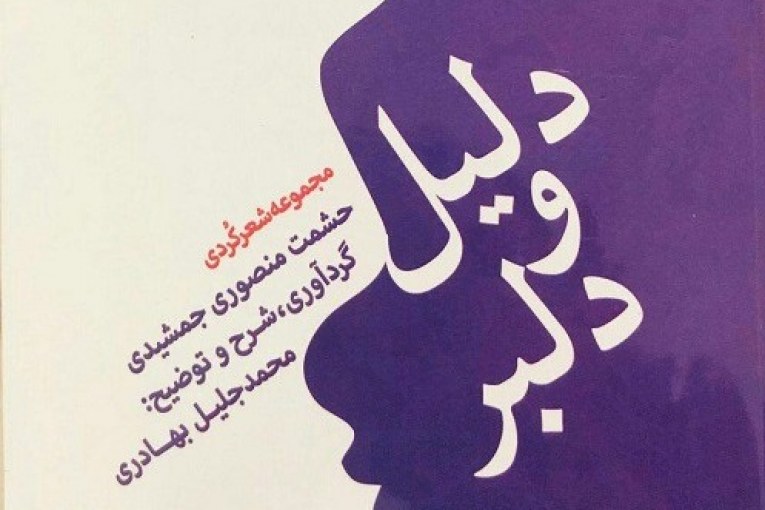 دلیل
و
دلبر
مجموعه شعر کُردی
حشمت منصوری جمشیدی
گردآوری، شرح و توضیح:
محمدجلیل بهادری